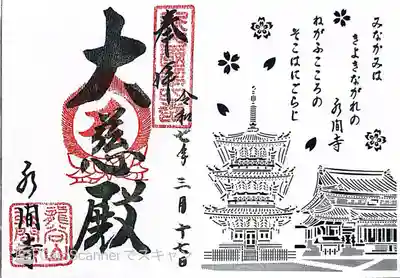 みなかみは
きよきながれの
水間寺
ねがふこころの
そこはにごらじ
奉拝
令和七年三月十七日
大慈殿
水間寺
Scannerでスキャ